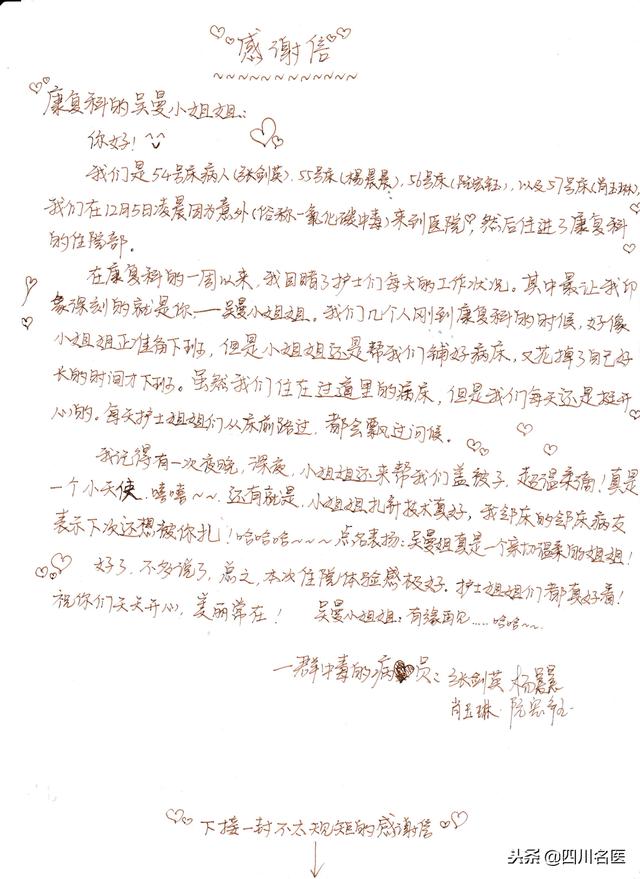 感谢信
康复科的吴曼小姐姐:
你好! ^^
我们是54号床病人(张剑英), 55号床(杨晨晨), 56号床(阮宏钰), 以及57号床(肖玉琳),
我们在12月5日凌晨因为意外(俗称一氧化碳中毒)来到医院, 然后住进了康复科
的住院部。
在康复科的一周以来, 我目睹了护士们每天的工作状况。其中最让我印
象深刻的就是你——吴曼小姐姐。我们几个人刚到康复科的时候, 好像
小姐姐正准备下班, 但是小姐姐还是帮我们铺好病床, 又花掉了自己好
长的时间才下班。虽然我们住在过道里的病床, 但是我们每天还是挺开
心的。每天护士姐姐们从床前路过, 都会飘过问候。
我记得有一次夜晚, 深夜, 小姐姐还来帮我们盖被子, 超温柔滴! 真是
一个小天使, 嘻嘻~~. 还有就是, 小姐姐扎针技术真好, 我邻床的邻床病友
表示下次还想被你扎! 哈哈哈~~~~ 点名表扬: 吴曼姐真是一个亲切温柔的姐姐!
好了, 不多说了, 总之, 本次住院体验感极好。护士姐姐们都真好看!
祝你们天天开心, 美丽常在! 吴曼小姐姐: 有缘再见...... 哈哈~~
一群中毒的病员: 张剑英 杨晨晨
肖玉琳 阮宏钰
下接一封不太规矩的感谢信
头条@四川名医